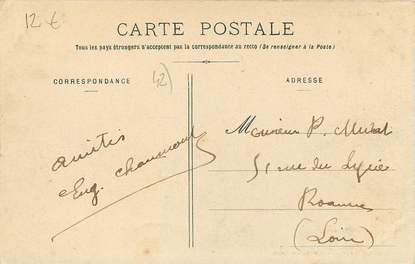 12 €
CARTE POSTALE
Tous les pays étrangers n'acceptent pas la correspondance au recto (Se renseigner à la Poste)
CORRESPONDANCE
42)
ADRESSE
amitis
Eug. Chaumont
Monsieur P. Mivat
51 rue du Lycée
Roanne
(Loire)